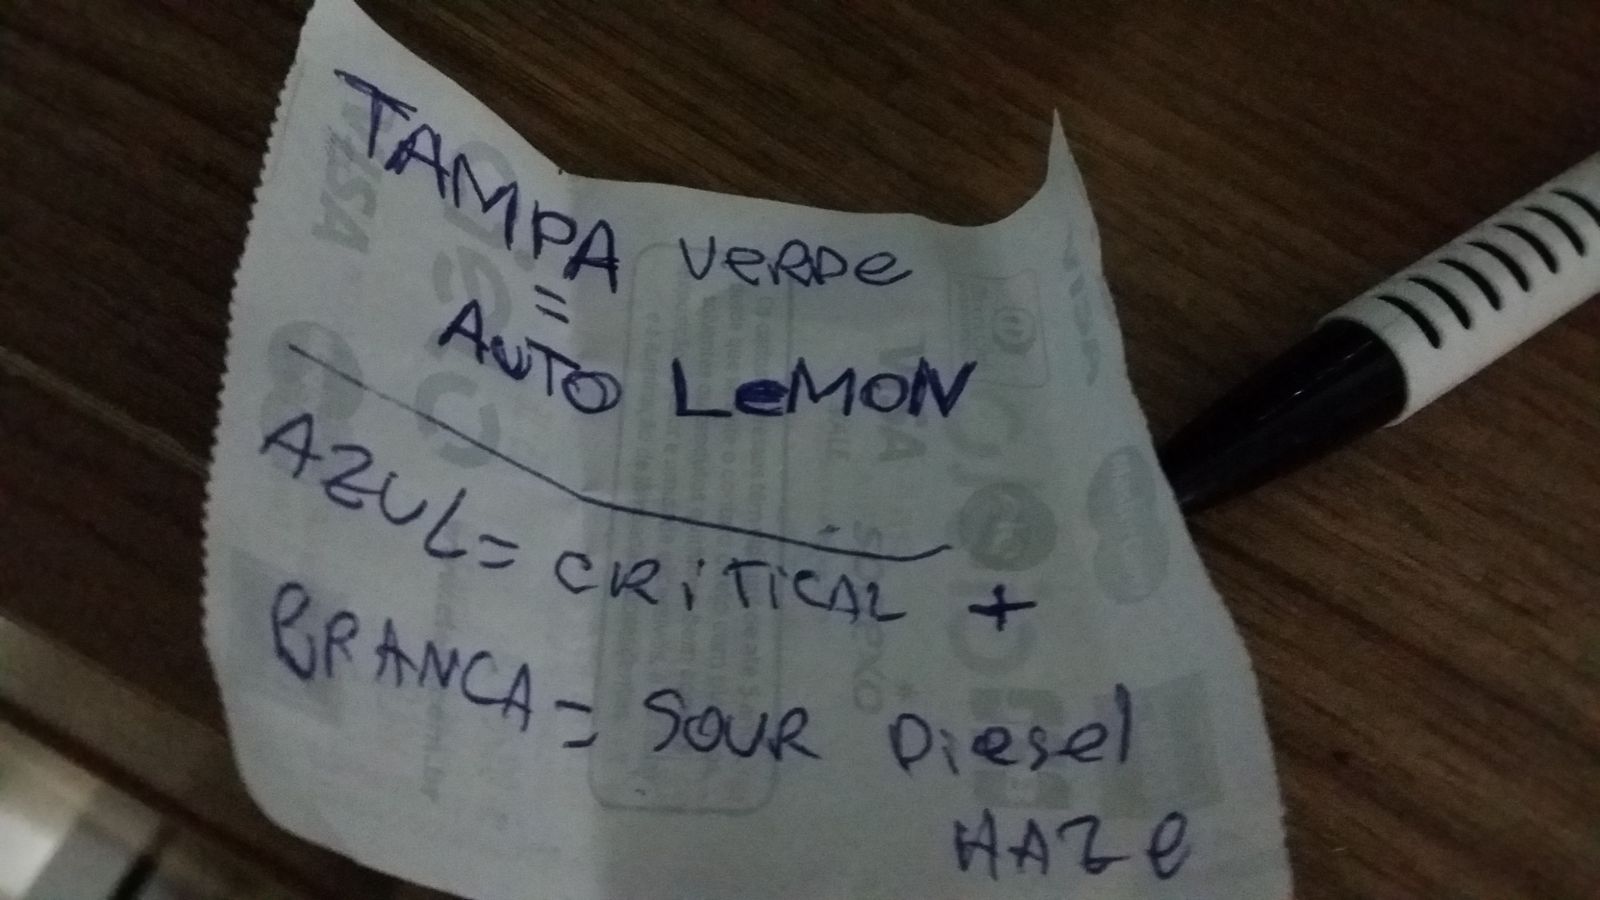 TAMPA VeRDe
=
AuTO LeMON
AZUL = CRiTiCAL +
BRANCA = SOUR Diesel
HAZe
VISA